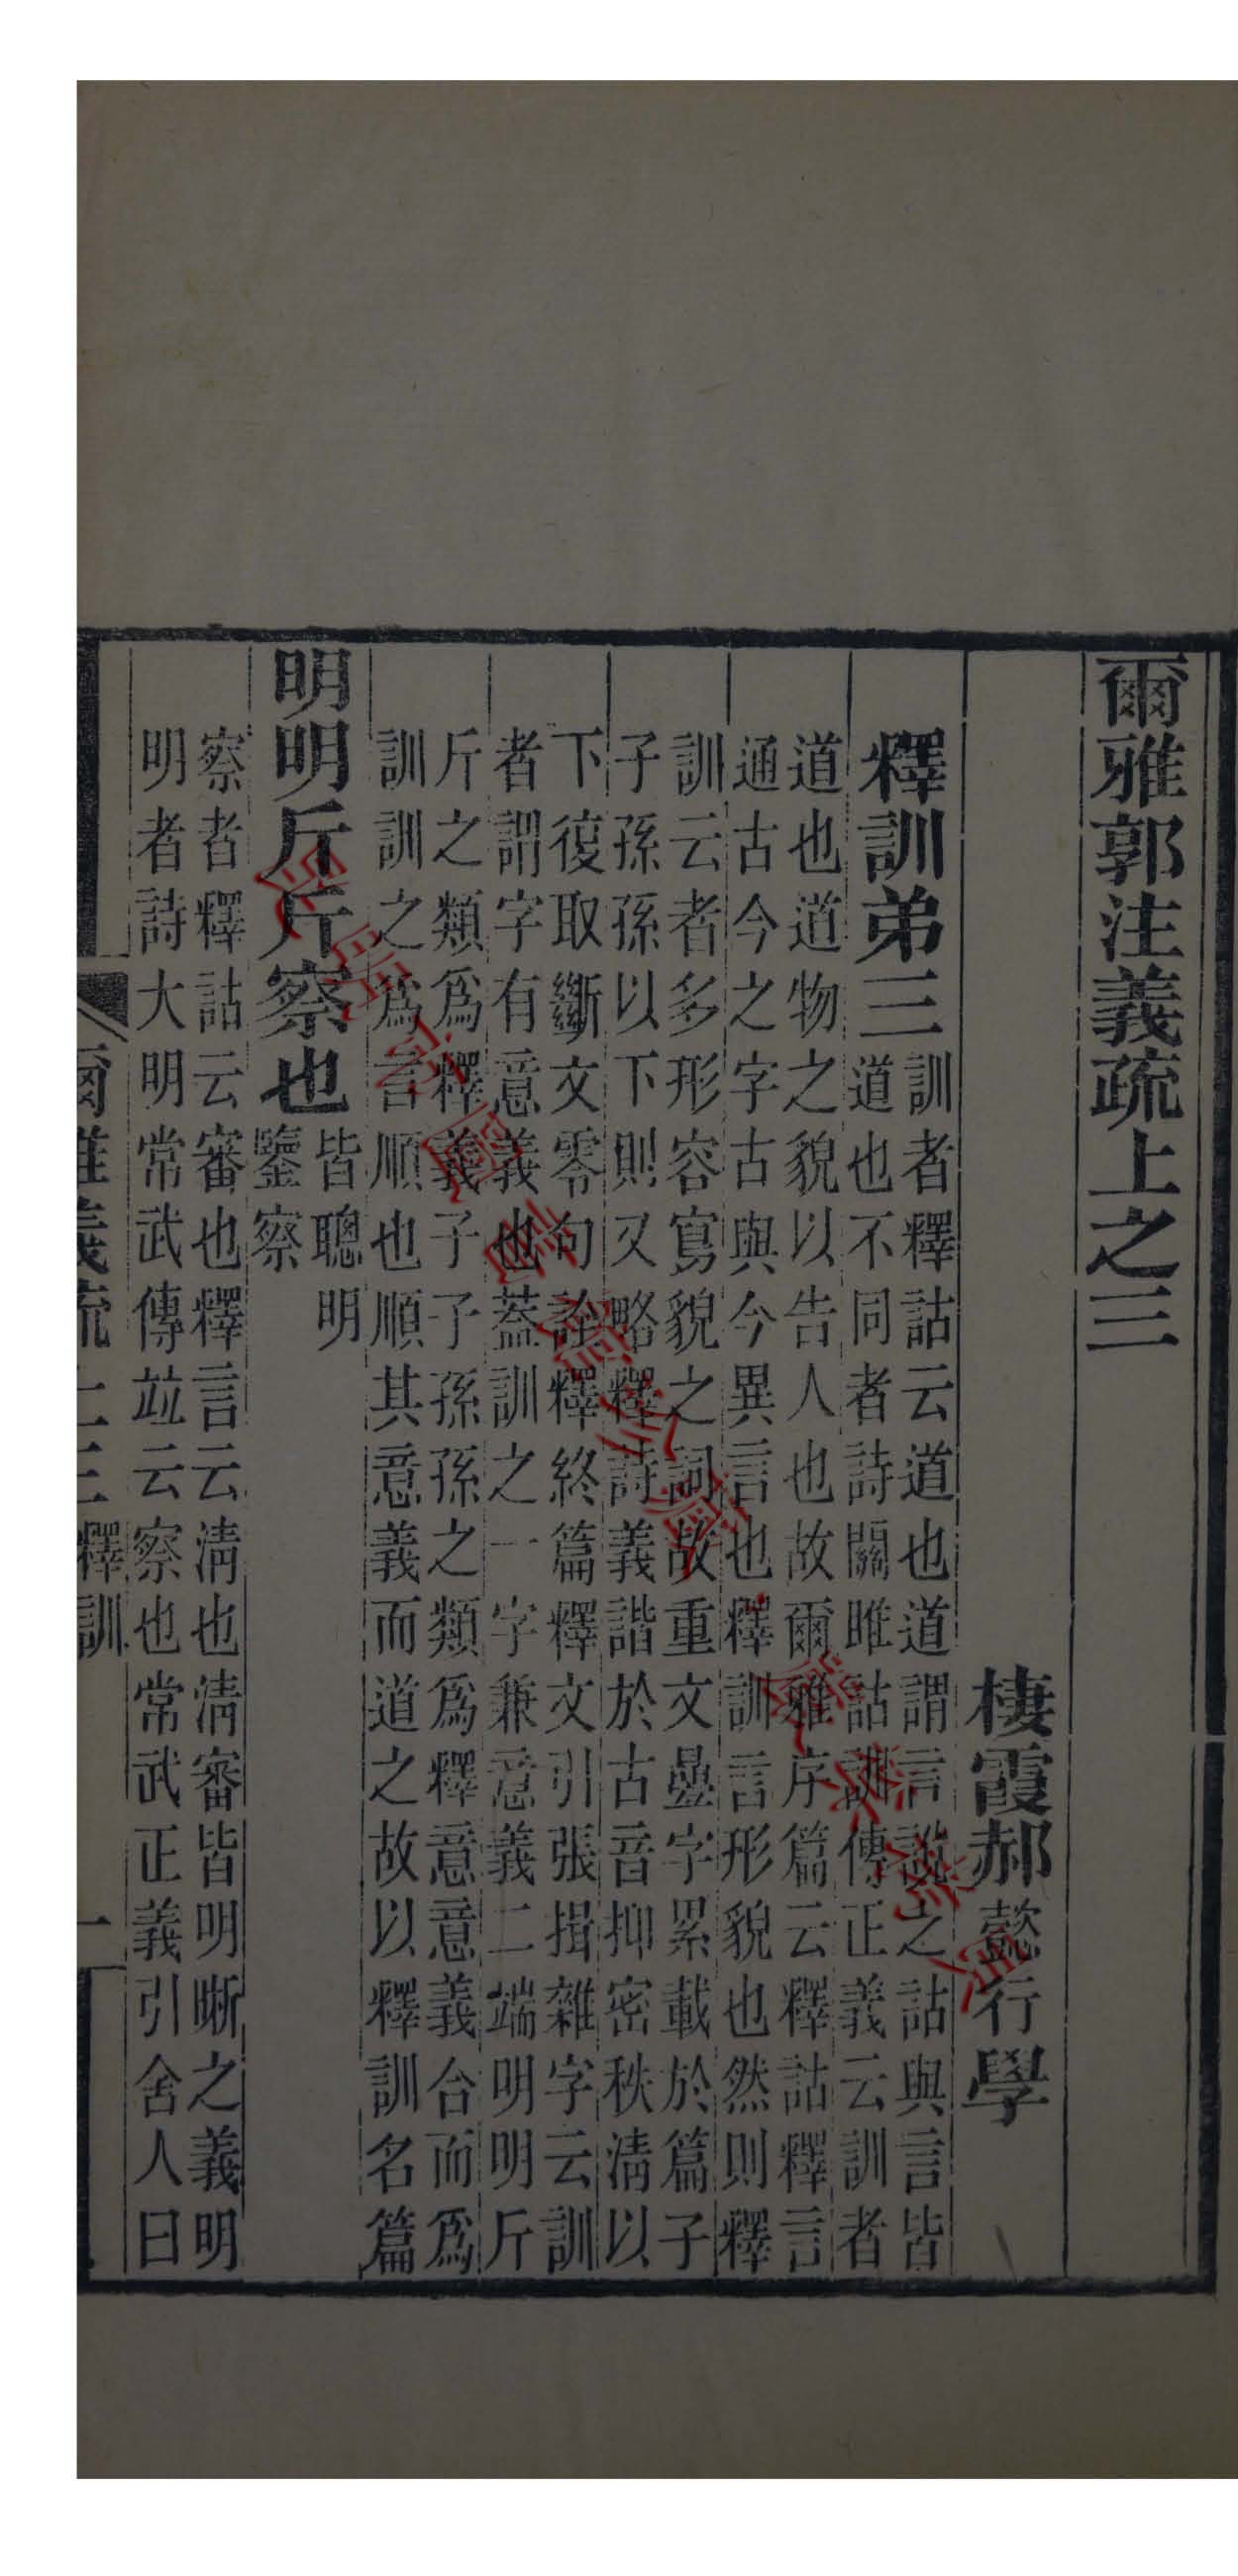 爾雅郭注義疏上之三
棲霞郝懿行學
釋訓弟三
訓者釋詁云道也道謂言說之詁與言皆
道也不同者詩關雎詁訓傳正義云訓者
道也道物之貌以告人也故爾雅序篇云釋詁釋言
通古今之字古與今異言也釋訓言形貌也然則釋
訓云者多形容寫貌之詞故重文疊字累載於篇子
子孫孫以下則又略釋詩義諧於古音抑密秩清以
下復取斷文零句詮釋終篇釋文引張揖雜字云訓
者謂字有意義也蓋訓之一字兼意義二端明明斤
斤之類為釋義子子孫孫之類為釋意意義合而為
訓訓之為言順也順其意義而道之故以釋訓名篇
明明斤斤察也
皆聰明
鑒察
察者釋詁云審也釋言云清也清審皆明晰之義明
明者詩大明常武傳竝云察也常武正義引舍人曰
爾雅義疏上三釋訓
一